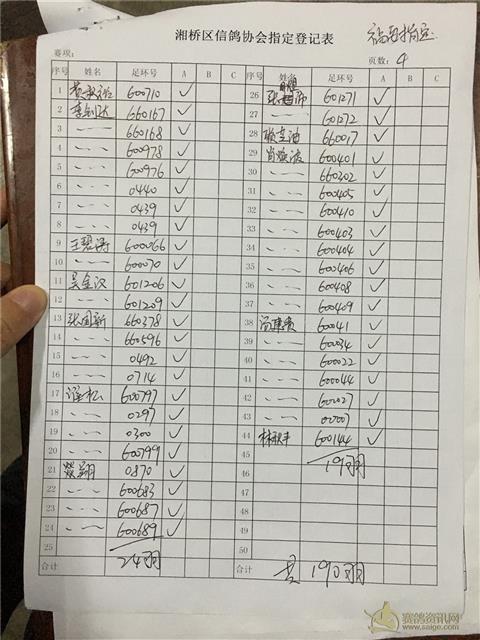 湘桥区信鸽协会指定登记表
赛项： 页数：4
序号 姓名 足环号 A B C 序号 姓名 足环号 A B C
1 600710 ✓ 26 601271 ✓
2 660167 ✓ 27 〃 601272 ✓
3 〃 660168 ✓ 28 660017 ✓
4 〃 600978 ✓ 29 肖焕波 600401 ✓
5 〃 600976 ✓ 30 〃 660302 ✓
6 〃 0440 ✓ 31 〃 600405 ✓
7 〃 0439 ✓ 32 〃 600410 ✓
8 〃 0439 ✓ 33 〃 600403 ✓
9 王碧涛 600066 ✓ 34 〃 600404 ✓
10 〃 600070 ✓ 35 〃 600406 ✓
11 吴金汉 601206 ✓ 36 〃 600408 ✓
12 〃 601209 ✓ 37 〃 600409 ✓
13 张国新 660378 ✓ 38 600041 ✓
14 〃 660596 ✓ 39 〃 60034 ✓
15 〃 0492 ✓ 40 〃 600022 ✓
16 〃 0714 ✓ 41 〃 600044 ✓
17 600797 ✓ 42 〃 60027 ✓
18 〃 0297 ✓ 43 〃 ✓
19 〃 0300 ✓ 44 600144 ✓
20 〃 600799 ✓ 45 19羽
21 0870 ✓ 46
22 〃 600683 ✓ 47
23 〃 600687 ✓ 48
24 〃 600689 ✓ 49
25 50
合计 24羽 合计 共190羽
赛鸽资讯网
www.saige.com